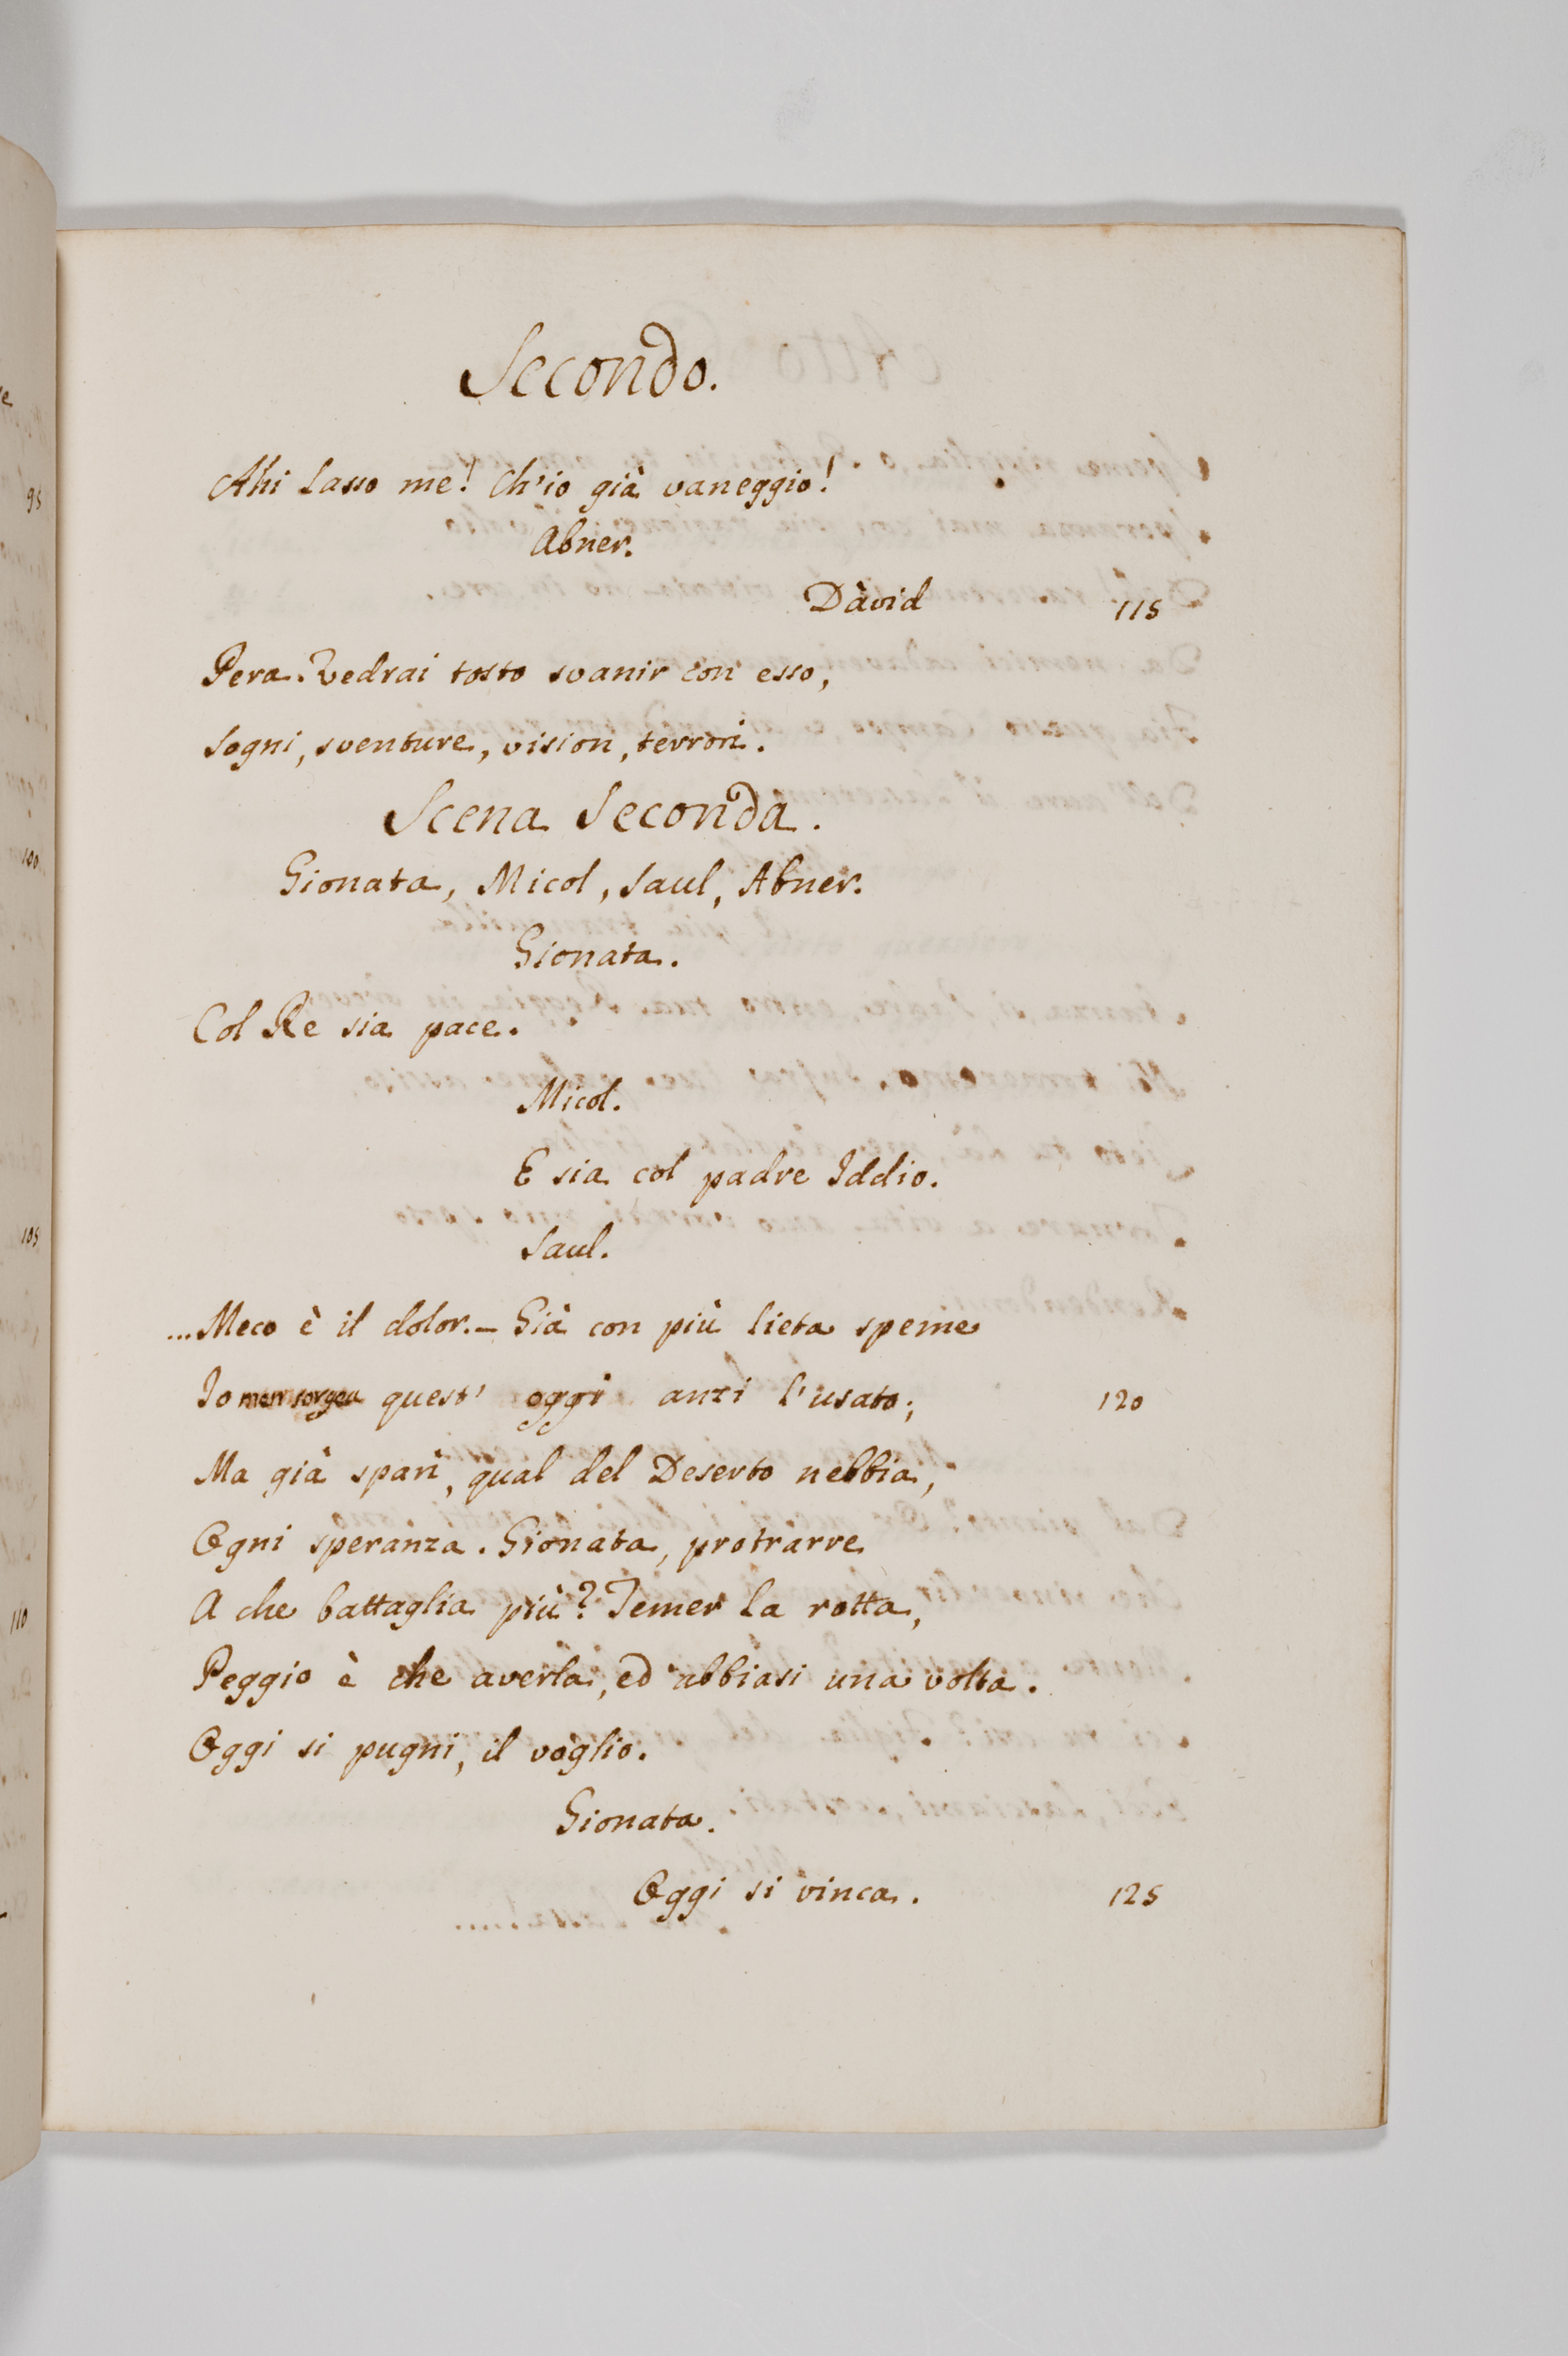 Secondo.
Ahi lasso me! Ch'io già vaneggio!
Abner.
Dàvid 115
Pera. Vedrai tosto svanir con esso,
Sogni, sventure, vision, terrori.
Scena Seconda.
Gionata, Micol, Saul, Abner.
Gionata.
Col Re sia pace.
Micol.
E sia col padre Iddio.
Saul.
...Meco è il dolor.- Già con più lieta speme
Io men sorgea quest' oggi anzi l'usato; 120
Ma già sparì, qual del Deserto nebbia,
Ogni speranza. Gionata, protrarre
A che battaglia più? Temer la rotta,
Peggio è che averla, ed abbiasi una volta.
Oggi si pugni, il voglio.
Gionata.
Oggi si vinca. 125
95
100
105
110